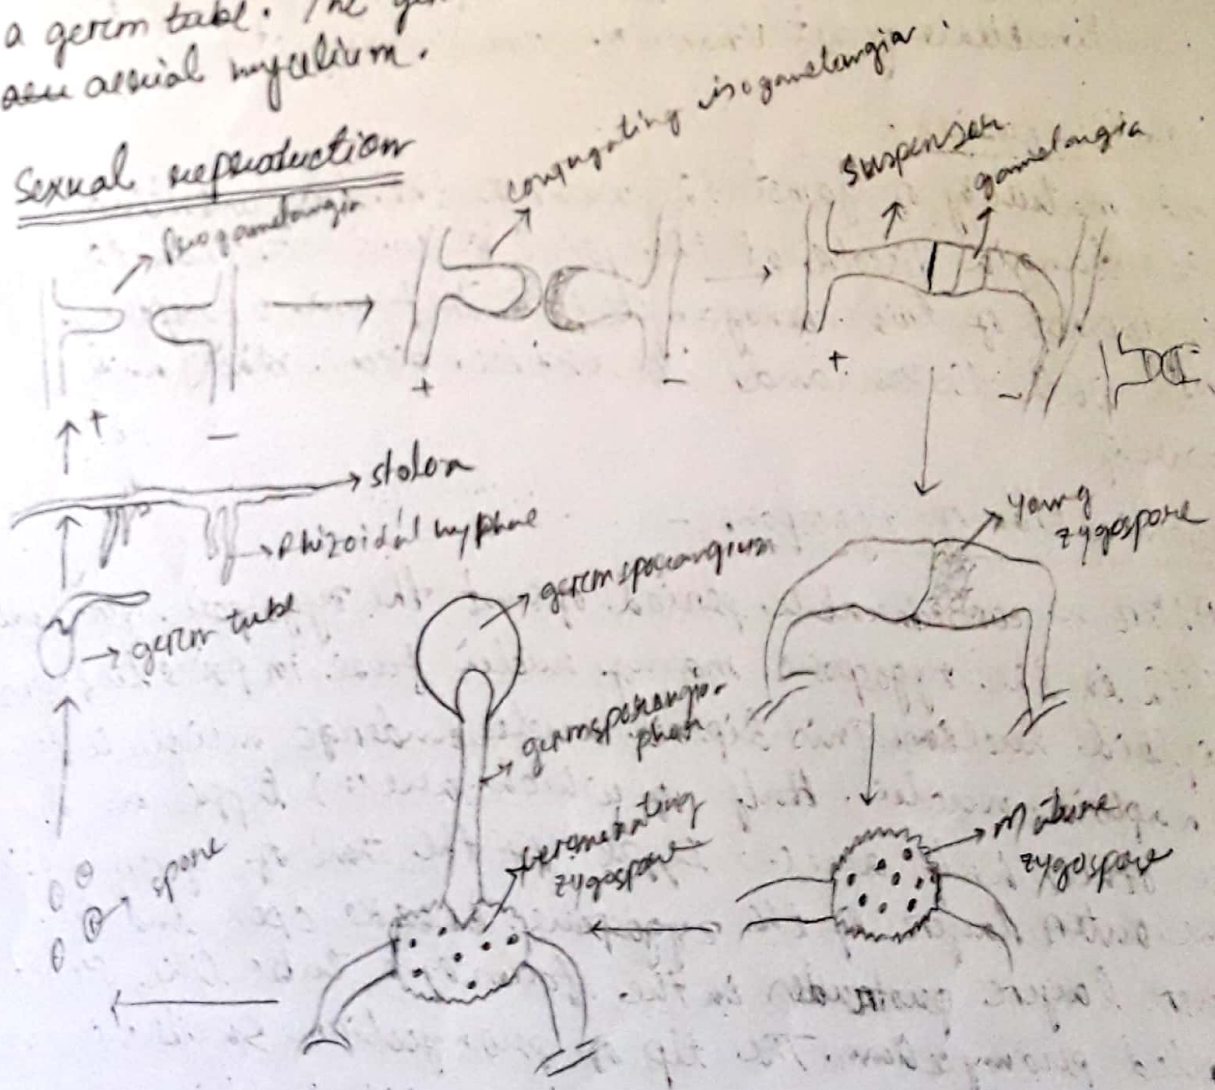 a germ tube. The
aerial mycelium.
Sexual reproduction
Progametangia
conjugating isogametangia
suspensor
gametangia
+
-
+
-
+
-
stolon
Rhizoidal hyphae
germ tube
germsporangium
germsporangio-
phor
Young
zygospore
Mature
zygospore
Germenating
zygospore
spore